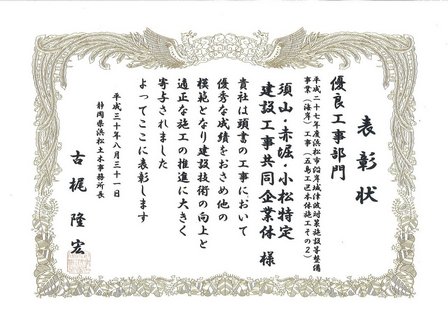 表彰状
優良工事部門
平成二十七年度浜松市沿岸域津波対策施設等整備
事業(海岸)工事(五島工区本体施工その2)
須山・赤堀・小松特定
建設工事共同企業体 様
貴社は頭書の工事において
優秀な成績をおさめ他の
模範となり建設技術の向上と
適正な施工の推進に大きく
寄与されました
よってここに表彰します
平成三十年八月三十一日
静岡県浜松土木事務所長
古梶隆宏